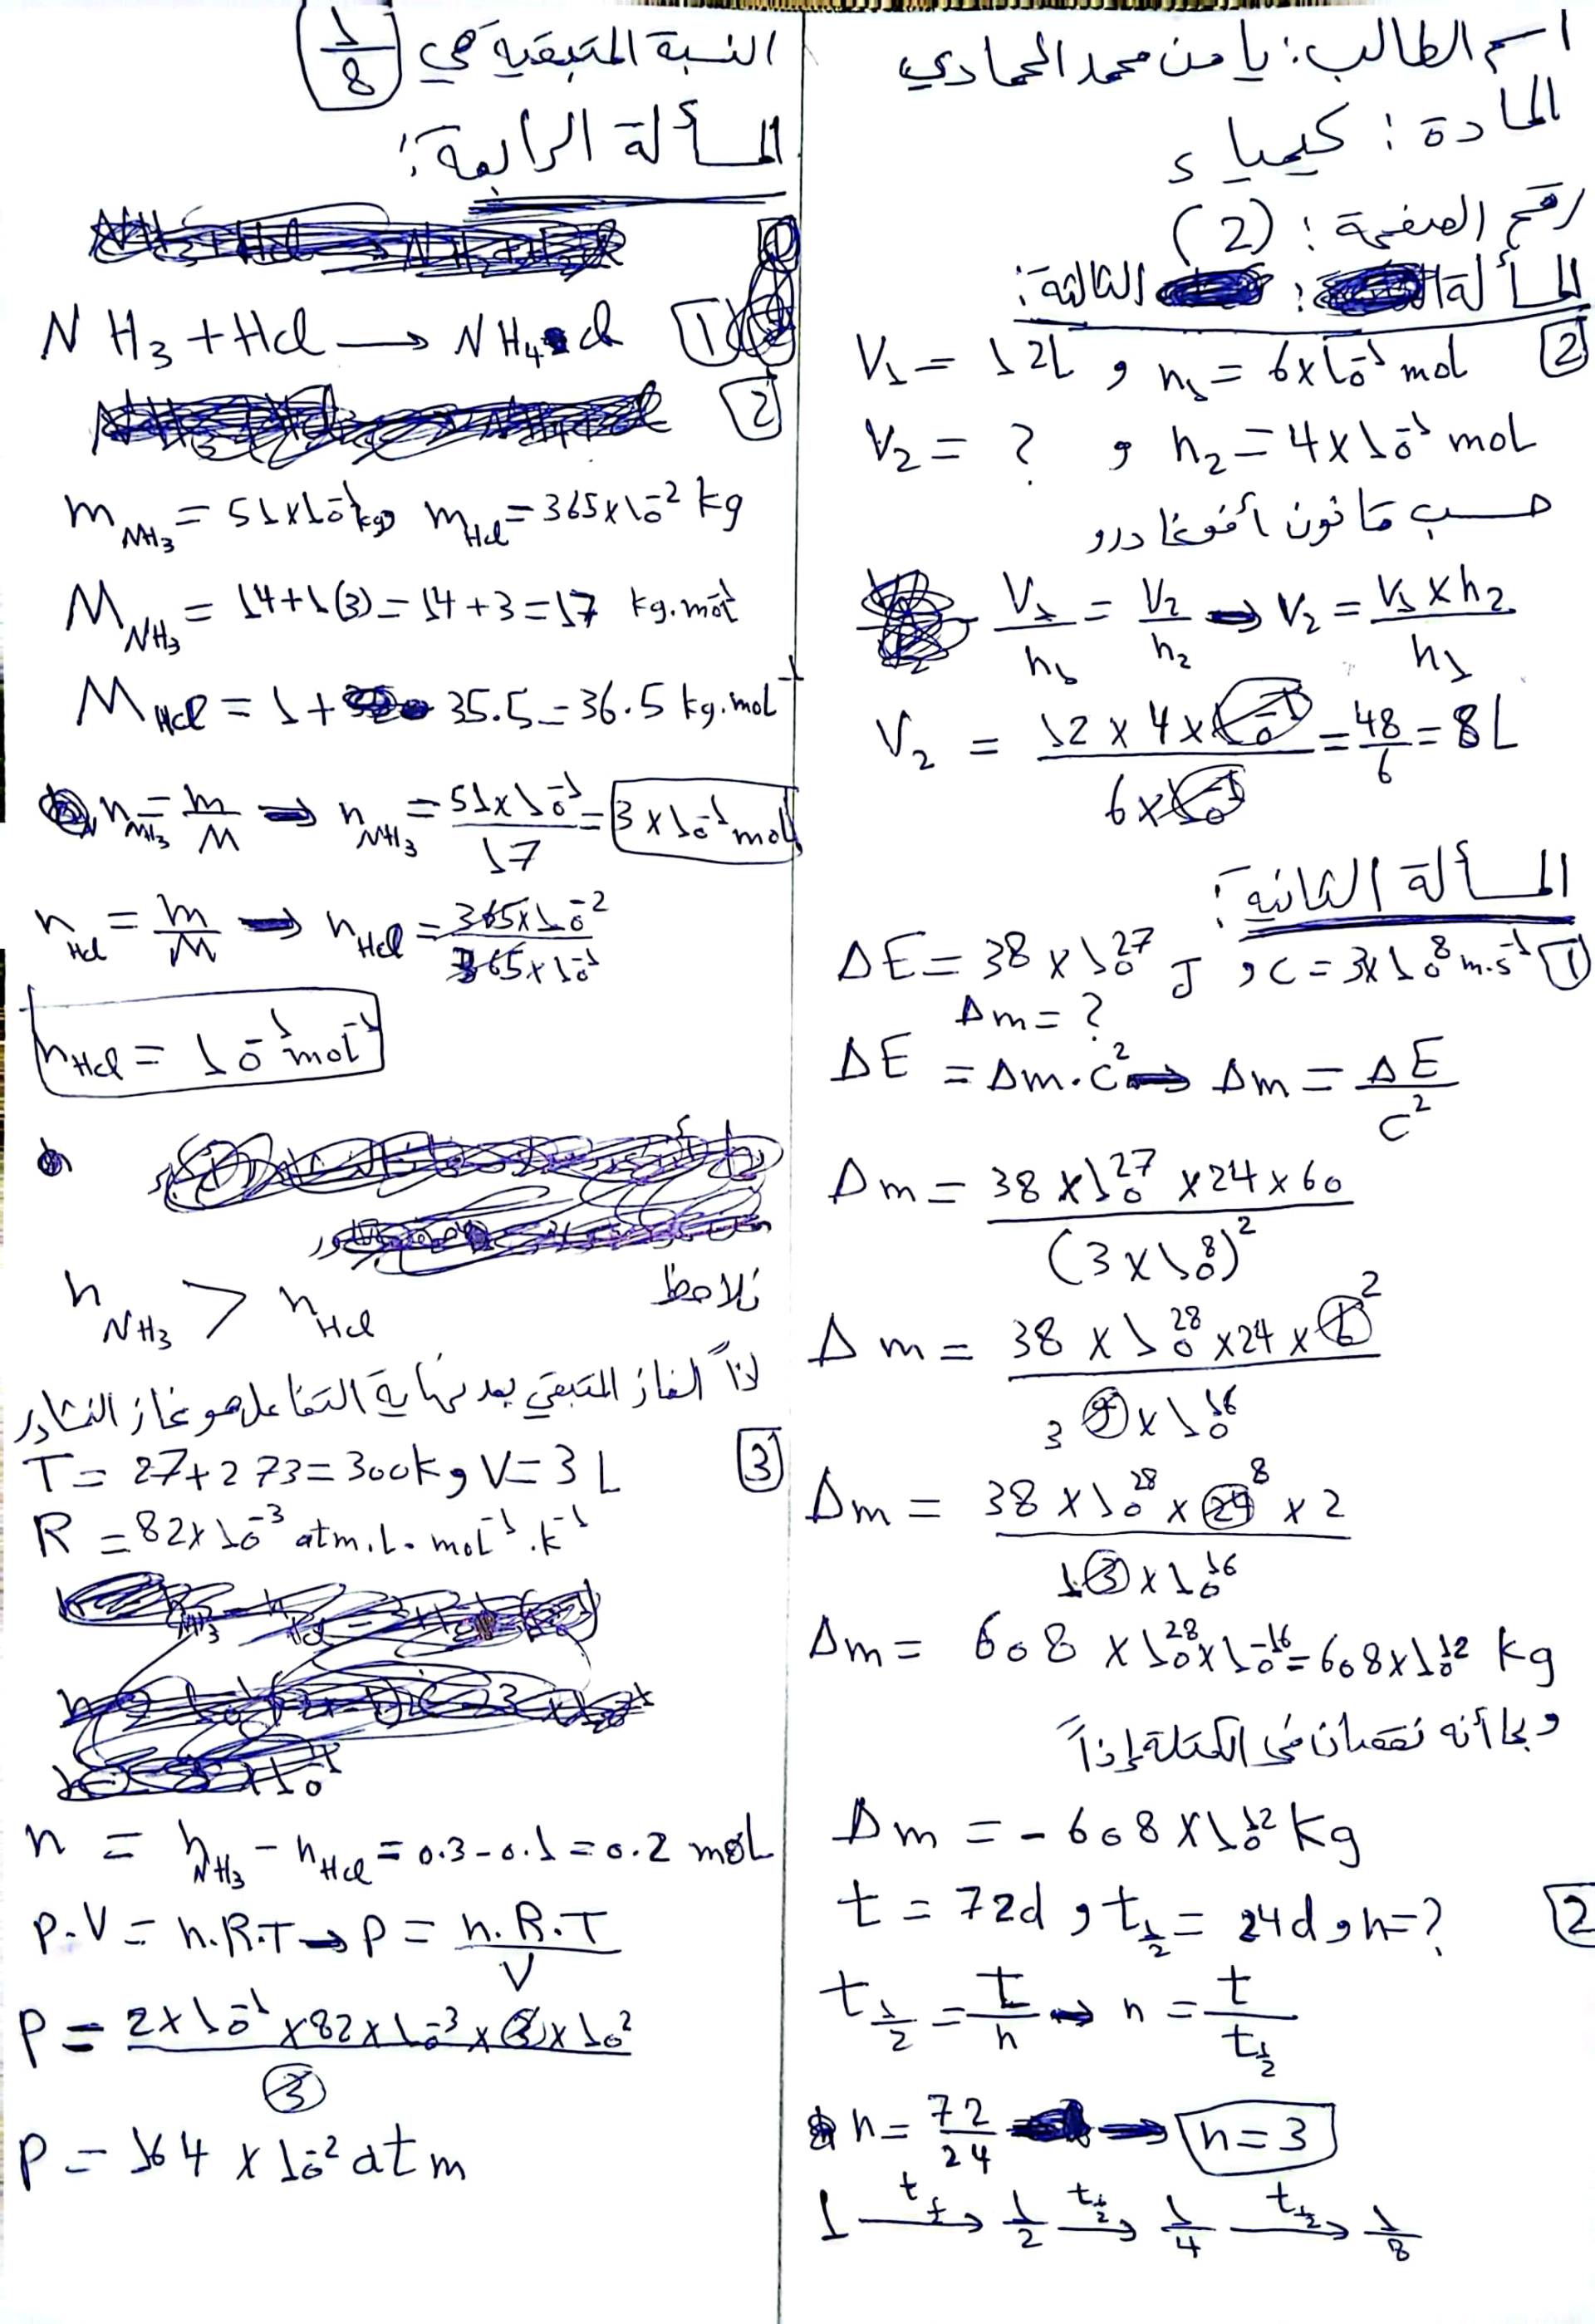 اسم الطالب: يا من محمد الحمادي
المادة: كيمياء
رقم الصفحة: (2)
المسألة الثالثة:
[2] V₁ = 12L و n₁ = 6×10⁻¹ mol
V₂ = ? و n₂ = 4×10⁻¹ mol
حسب قانون أفوغادرو
V₁/n₁ = V₂/n₂ ⇒ V₂ = V₁×n₂/n₁
V₂ = 12×4×10⁻¹/6×10⁻¹ = 48/6 = 8L
المسألة الثانية:
[1] ΔE = 38×10²⁷ J و C = 3×10⁸ m.s⁻¹
Δm = ?
ΔE = Δm.C² ⇒ Δm = ΔE/C²
Δm = 38×10²⁷×24×60/(3×10⁸)²
Δm = 38×10²⁸×24×6 2/3 9×10¹⁶
Δm = 38×10²⁸×24 8×2/1 3×10¹⁶
Δm = 608×10²⁸×10⁻¹⁶ = 608×10¹² kg
وبما أنه نقصان في الكتلة إذاً
Δm = -608×10¹² kg
[2] t = 72d و t½ = 24d و n=?
t½ = t/n ⇒ n = t/t½
n = 72/24 ⇒ n=3
1 →t½ 1/2 →t½ 1/4 →t½ 1/8
النسبة المتبقية هي (1/8)
المسألة الرابعة:
[1] NH₃ + HCl → NH₄Cl
[2]
m NH₃ = 51×10⁻¹ kg و m HCl = 365×10⁻² kg
M NH₃ = 14+1(3) = 14+3 = 17 kg.mol⁻¹
M HCl = 1+35.5 = 36.5 kg.mol⁻¹
n NH₃ = m/M ⇒ n NH₃ = 51×10⁻¹/17 = 3×10⁻¹ mol
n HCl = m/M ⇒ n HCl = 365×10⁻²/365×10⁻¹
n HCl = 10⁻¹ mol⁻¹
نلاحظ n NH₃ > n HCl
اذاً الغاز المتبقي بعد نهاية التفاعل هو غاز النشادر
[3] T = 27+273 = 300k و V = 3 L
R = 82×10⁻³ atm.L.mol⁻¹.k⁻¹
n = n NH₃ - n HCl = 0.3-0.1 = 0.2 mol
P.V = n.R.T ⇒ P = n.R.T/V
P = 2×10⁻¹×82×10⁻³×3×10²/3
P = 164×10⁻² atm